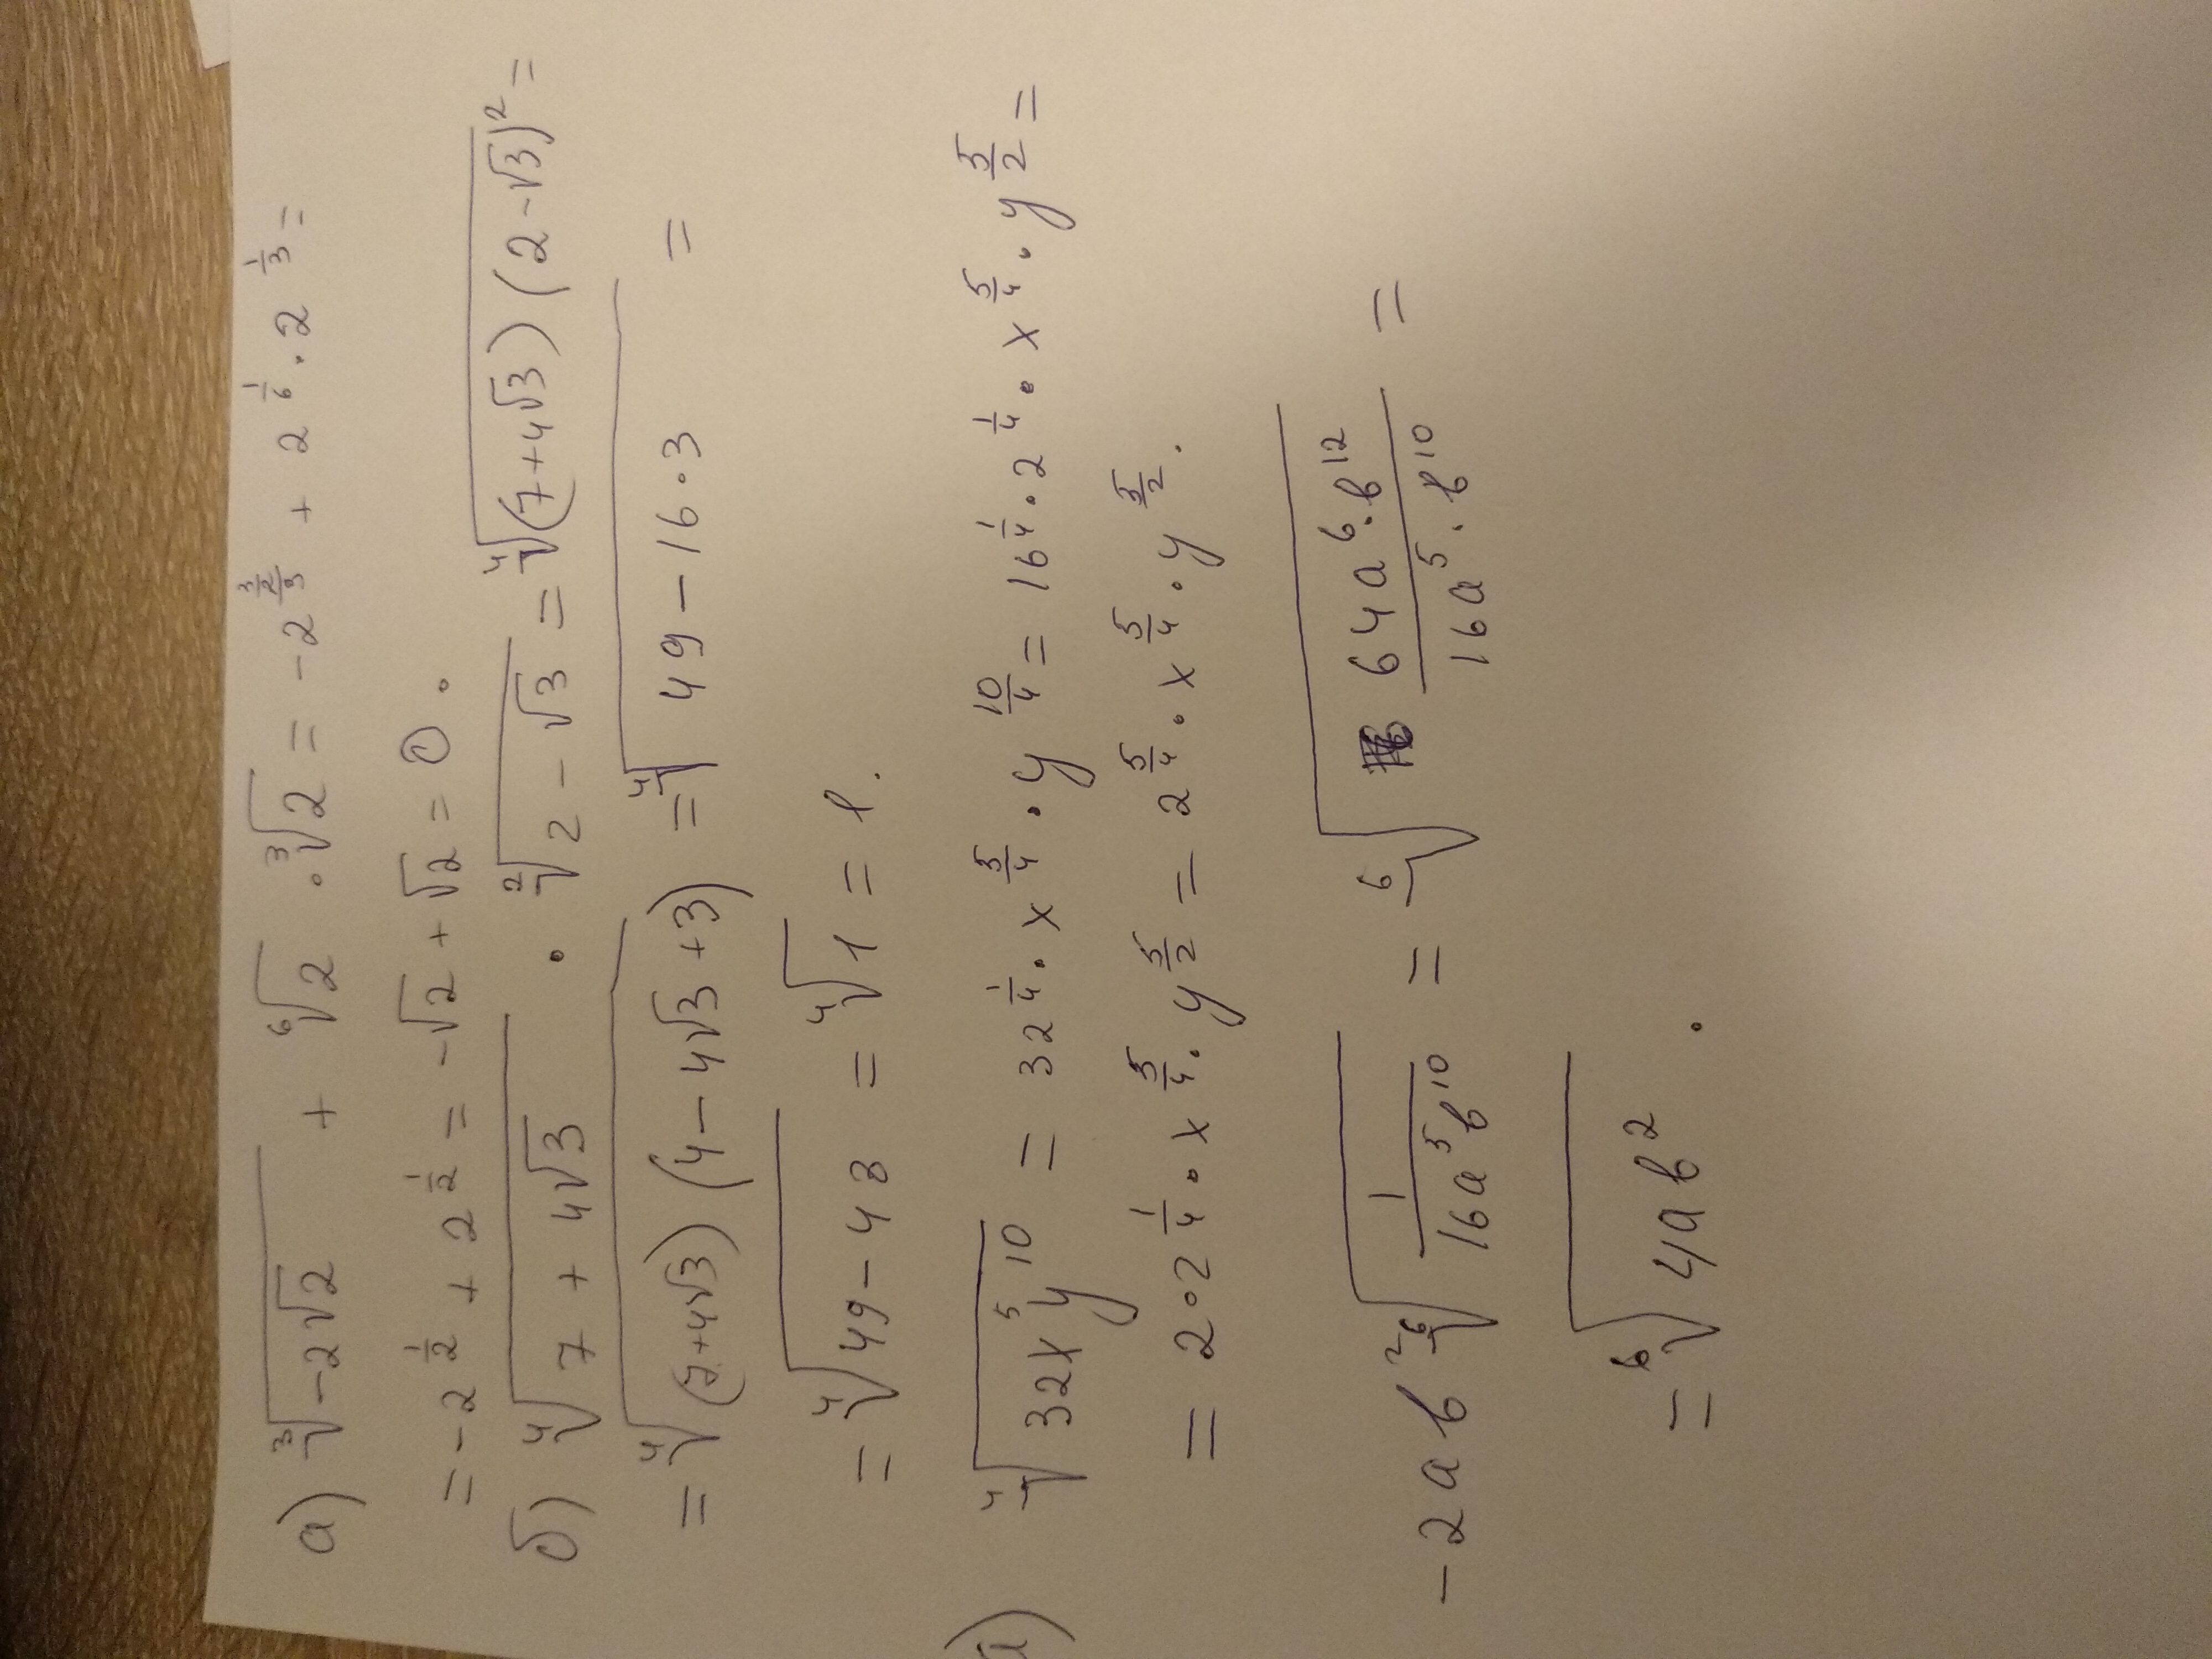 а) ∛(-2√2) + ⁶√2 · ∛2 = -2^((3/2)/3) + 2^(1/6) · 2^(1/3) =
= -2^(1/2) + 2^(1/2) = -√2 + √2 = 0.
б) ⁴√(7 + 4√3) · ²√(2 - √3) = ⁴√((7+4√3)(2-√3)²) =
= ⁴√((7+4√3)(4-4√3+3)) = ⁴√(49-16·3) =
= ⁴√(49-48) = ⁴√1 = 1.
⁴√(32x⁵y¹⁰) = 32^(1/4) · x^(5/4) · y^(10/4) = 16^(1/4) · 2^(1/4) · x^(5/4) · y^(5/2) =
= 2·2^(1/4) · x^(5/4) · y^(5/2) = 2^(5/4) · x^(5/4) · y^(5/2).
-2ab² ⁶√(1/(16a⁵b¹⁰)) = ⁶√(64a⁶·b¹²/(16a⁵·b¹⁰)) =
= ⁶√(4ab²).